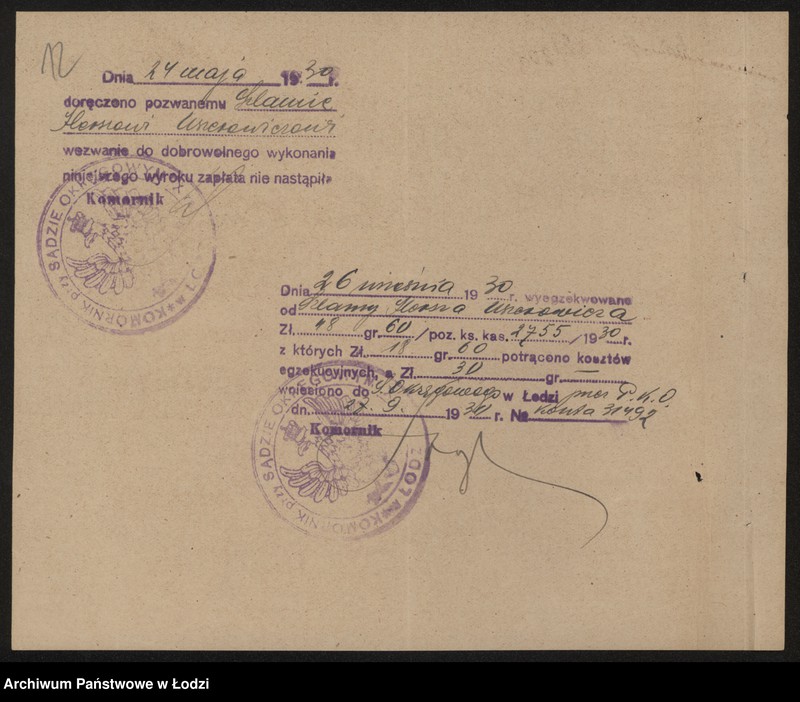 12
Dnia 24 maja 1930 r.
doręczono pozwanemu Szlamie
wezwanie do dobrowolnego wykonania
niniejszego wyroku zapłata nie nastąpiła
Komornik
KOMORNIK przy SĄDZIE OKRĘGOWYM ŁODZI
Dnia 26 września 1930 r. wyegzekwowano
od Szlamy
Zł. 48 gr. 60 / poz. ks. kas. 2755 / 1930 r.
z których Zł. 18 gr. 60 potrącono kosztów
egzekucyjnych, a Zł. 30 gr. —
wniesiono do S. Okręgowego w Łodzi przez P.K.O.
dn. 27. 9. 1930 r. № konta 31492
Komornik
KOMORNIK przy SĄDZIE OKRĘGOWYM ŁODZI
Archiwum Państwowe w Łodzi